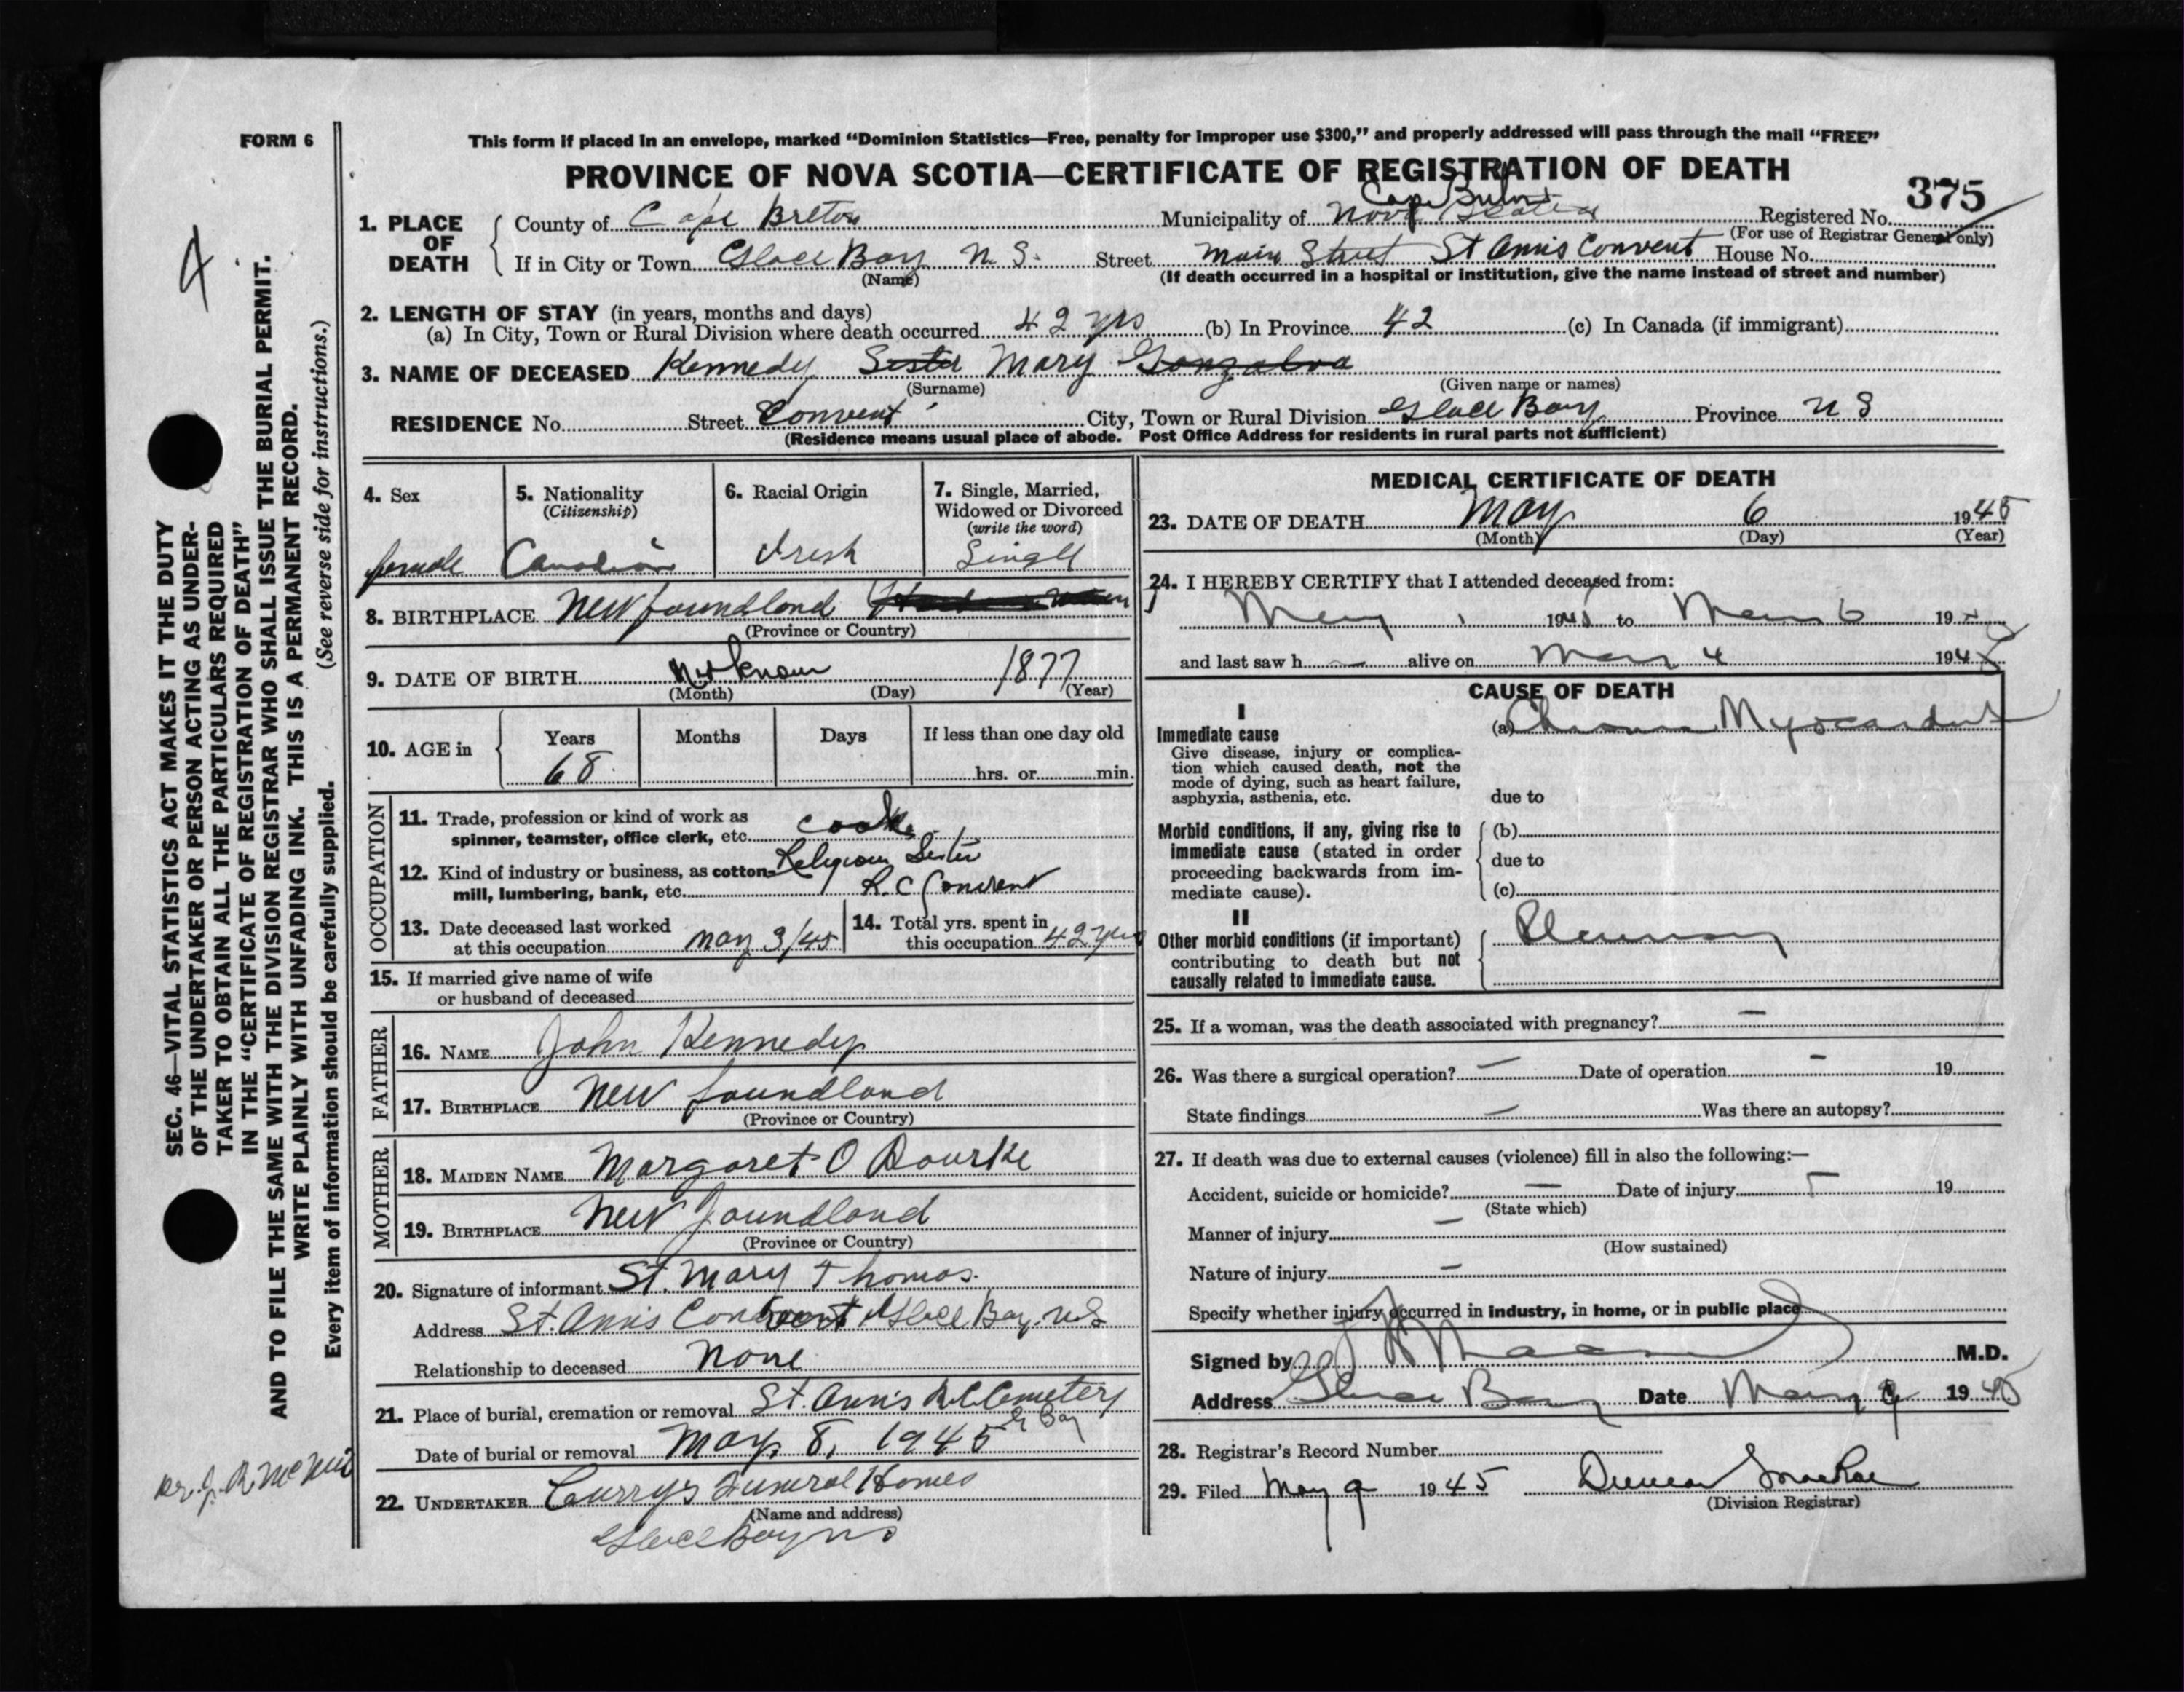 FORM 6
This form if placed in an envelope, marked “Dominion Statistics—Free, penalty for improper use $300,” and properly addressed will pass through the mail “FREE”
PROVINCE OF NOVA SCOTIA—CERTIFICATE OF REGISTRATION OF DEATH
375
1. PLACE OF DEATH
County of Cape Breton Municipality of Nova Scotia Cape Breton Registered No.
(For use of Registrar General only)
If in City or Town Glace Bay N.S. Street Main Street St Anns Convent House No.
(Name) (If death occurred in a hospital or institution, give the name instead of street and number)
2. LENGTH OF STAY (in years, months and days)
(a) In City, Town or Rural Division where death occurred 42 yrs (b) In Province 42 (c) In Canada (if immigrant)
3. NAME OF DECEASED Kennedy Sister Mary Gonzalva
(Surname) (Given name or names)
RESIDENCE No. Street Convent City, Town or Rural Division Glace Bay Province N S
(Residence means usual place of abode. Post Office Address for residents in rural parts not sufficient)
4. Sex
female
5. Nationality
(Citizenship)
Canadian
6. Racial Origin
Irish
7. Single, Married,
Widowed or Divorced
(write the word)
Single
8. BIRTHPLACE Newfoundland
(Province or Country)
9. DATE OF BIRTH Not known 1877
(Month) (Day) (Year)
10. AGE in
Years Months Days If less than one day old
68 hrs. or min.
OCCUPATION
11. Trade, profession or kind of work as
spinner, teamster, office clerk, etc. cook
12. Kind of industry or business, as cotton- Religious Sister
mill, lumbering, bank, etc. R.C Convent
13. Date deceased last worked
at this occupation May 3/45
14. Total yrs. spent in
this occupation 42 yrs
15. If married give name of wife
or husband of deceased
FATHER
16. NAME John Kennedy
17. BIRTHPLACE New foundland
(Province or Country)
MOTHER
18. MAIDEN NAME Margaret O Rourke
19. BIRTHPLACE New Foundland
(Province or Country)
20. Signature of informant Sr. Mary Thomas.
Address St. Ann's Convent Glace Bay. N.S
Relationship to deceased None
21. Place of burial, cremation or removal St. Ann's R.C Cemetery
G Bay
Date of burial or removal May, 8, 1945
22. UNDERTAKER Curry's Funeral Homes
(Name and address)
Glace Bay NS
MEDICAL CERTIFICATE OF DEATH
23. DATE OF DEATH May 6 1945
(Month) (Day) (Year)
24. I HEREBY CERTIFY that I attended deceased from:
May 1 194 to May 6 19
and last saw h alive on May 4 194
CAUSE OF DEATH
I
Immediate cause
Give disease, injury or complica-
tion which caused death, not the
mode of dying, such as heart failure,
asphyxia, asthenia, etc.
(a) Chronic Myocarditis
due to
Morbid conditions, if any, giving rise to
immediate cause (stated in order
proceeding backwards from im-
mediate cause).
(b)
due to
(c)
II
Other morbid conditions (if important)
contributing to death but not
causally related to immediate cause.
25. If a woman, was the death associated with pregnancy? —
26. Was there a surgical operation? — Date of operation — 19
State findings — Was there an autopsy?
27. If death was due to external causes (violence) fill in also the following:—
Accident, suicide or homicide? — Date of injury 19
(State which)
Manner of injury —
(How sustained)
Nature of injury —
Specify whether injury occurred in industry, in home, or in public place
Signed by M.D.
Address Glace Bay Date May 9 1945
28. Registrar's Record Number
29. Filed May 9 1945 Duncan MacRae
(Division Registrar)
SEC. 46—VITAL STATISTICS ACT MAKES IT THE DUTY
OF THE UNDERTAKER OR PERSON ACTING AS UNDER-
TAKER TO OBTAIN ALL THE PARTICULARS REQUIRED
IN THE “CERTIFICATE OF REGISTRATION OF DEATH”
AND TO FILE THE SAME WITH THE DIVISION REGISTRAR WHO SHALL ISSUE THE BURIAL PERMIT.
WRITE PLAINLY WITH UNFADING INK. THIS IS A PERMANENT RECORD.
Every item of information should be carefully supplied. (See reverse side for instructions.)